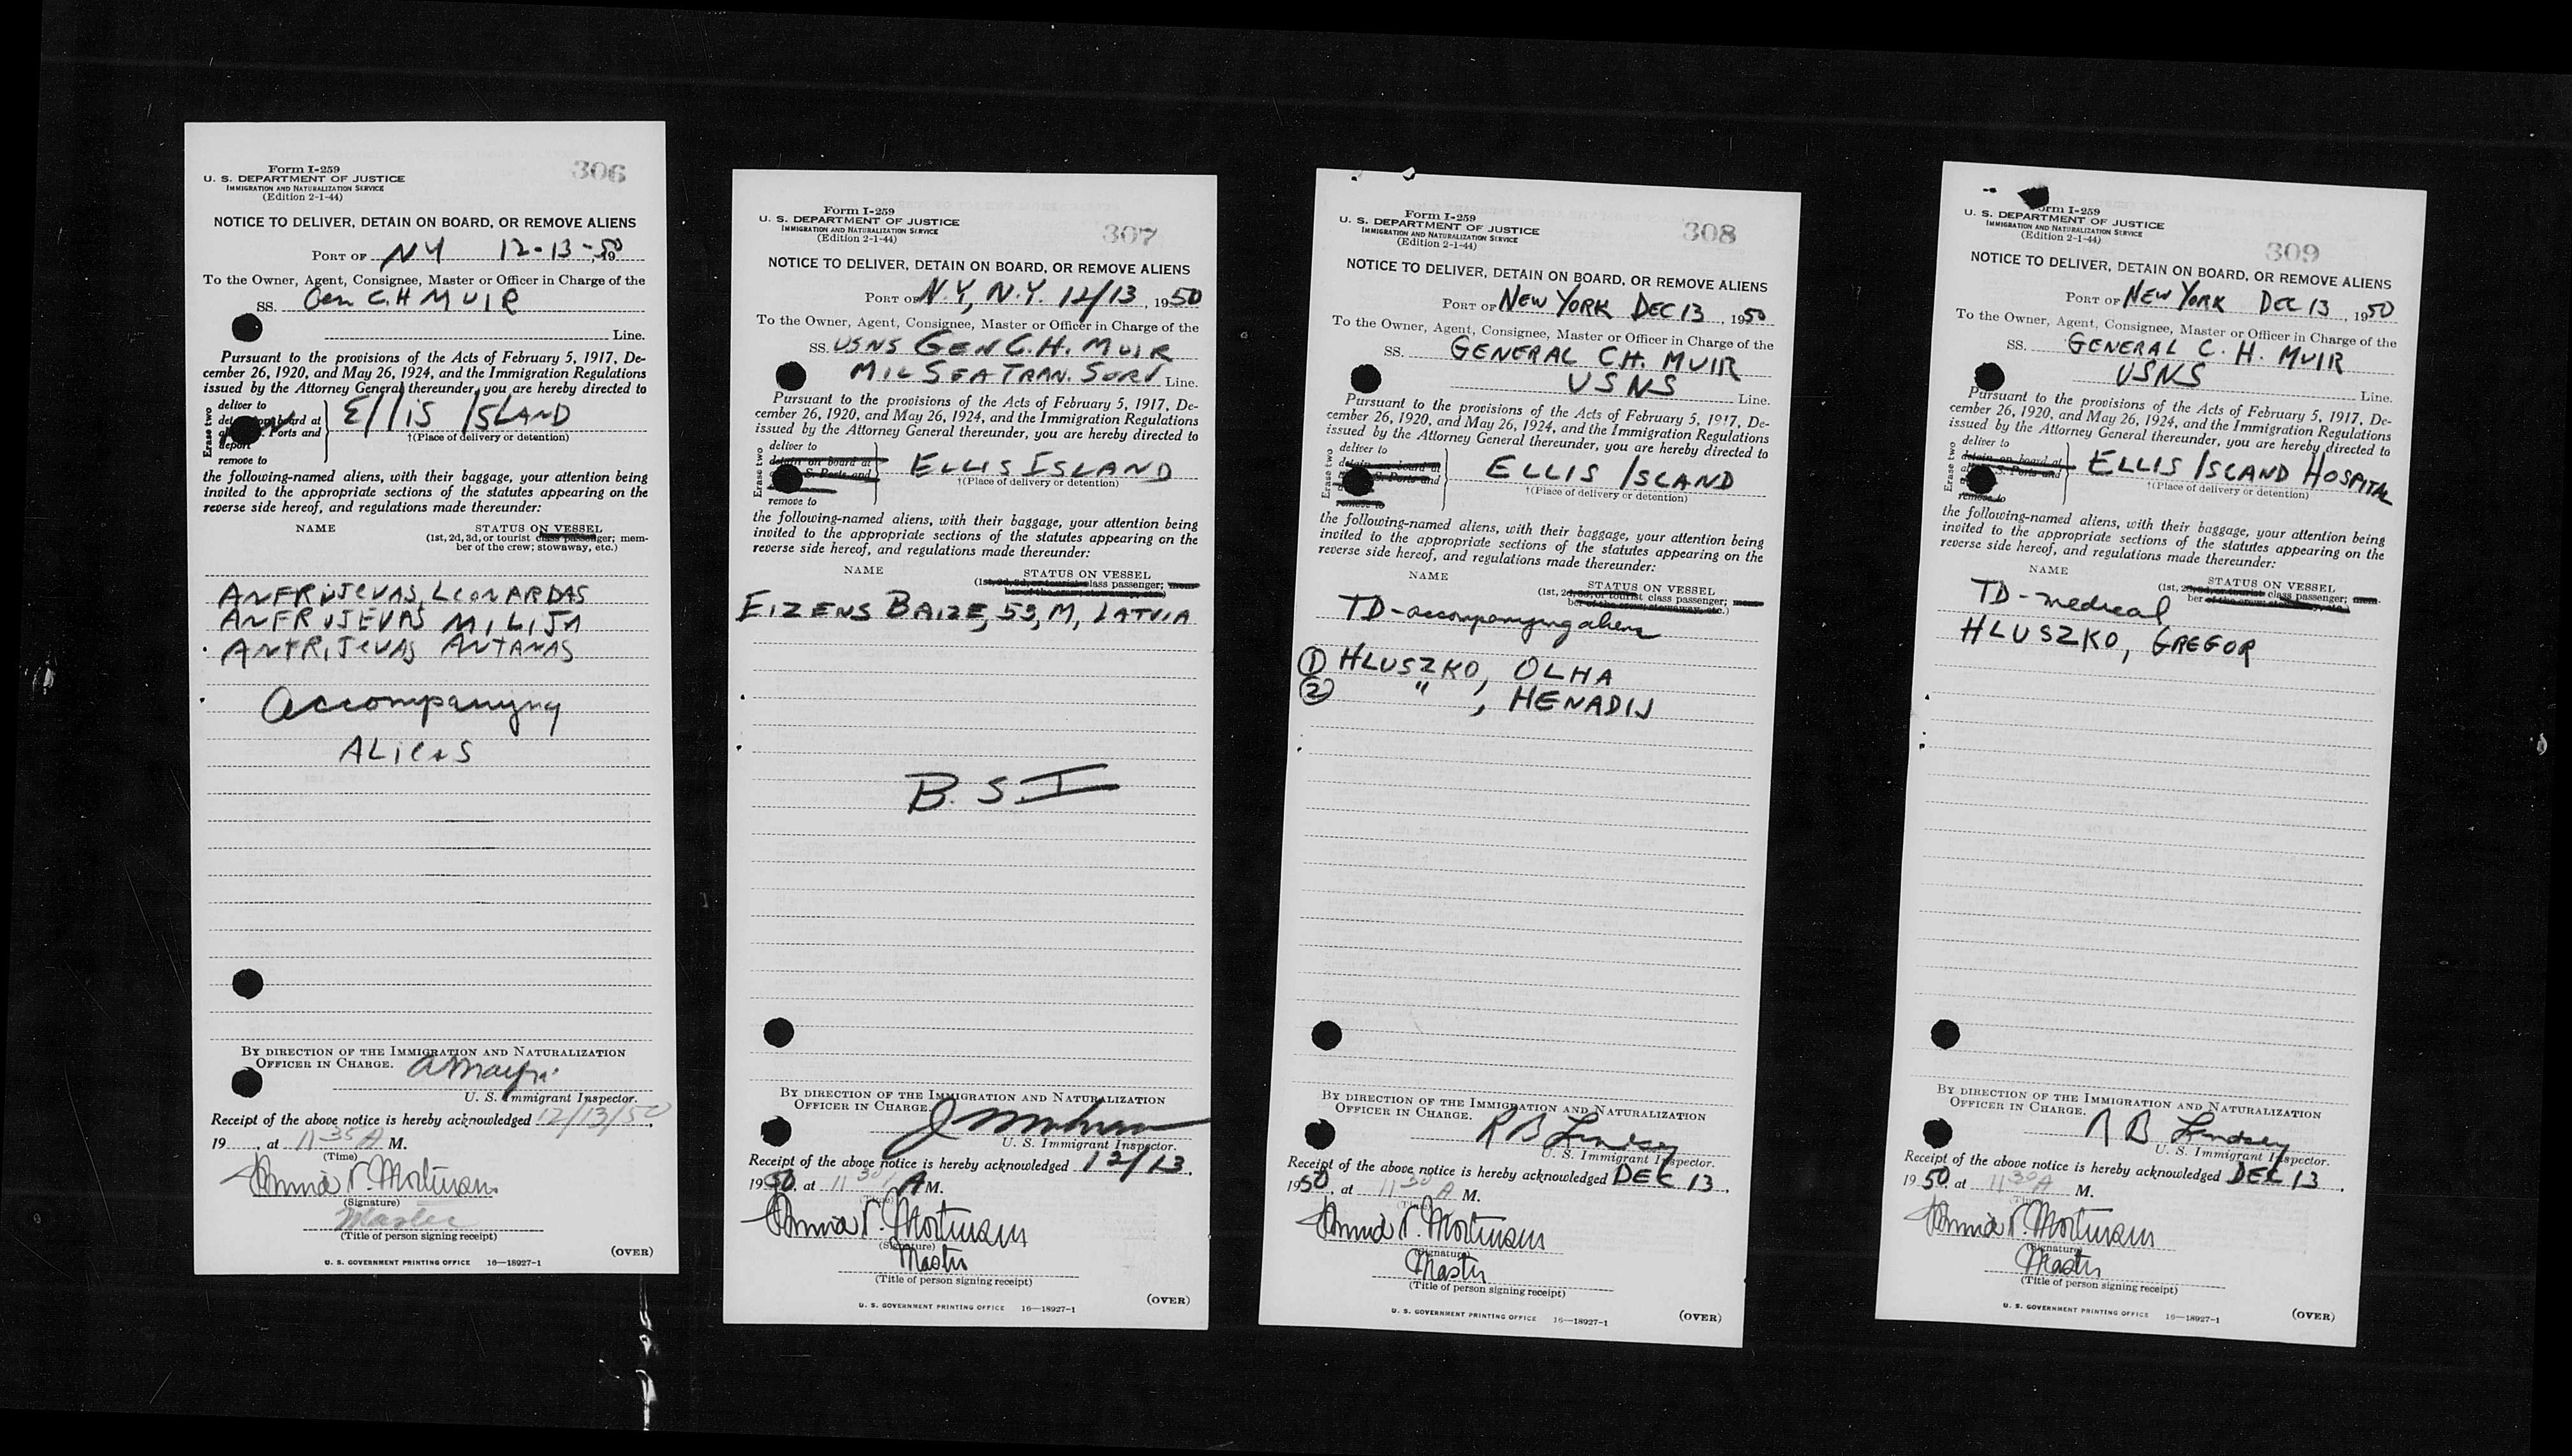 306
Form I-259
U. S. DEPARTMENT OF JUSTICE
IMMIGRATION AND NATURALIZATION SERVICE
(Edition 2-1-44)
NOTICE TO DELIVER, DETAIN ON BOARD, OR REMOVE ALIENS
PORT OF NY 12-13-50
To the Owner, Agent, Consignee, Master or Officer in Charge of the
SS. Gen C.H MUIR
Line.
Pursuant to the provisions of the Acts of February 5, 1917, De-
cember 26, 1920, and May 26, 1924, and the Immigration Regulations
issued by the Attorney General thereunder, you are hereby directed to
Erase two
deliver to
board at
Ports and
deport
remove to
ELLIS ISLAND
†(Place of delivery or detention)
the following-named aliens, with their baggage, your attention being
invited to the appropriate sections of the statutes appearing on the
reverse side hereof, and regulations made thereunder:
NAME STATUS ON VESSEL
(1st, 2d, 3d, or tourist class passenger; mem-
ber of the crew; stowaway, etc.)
LEONARDAS
MILIJA
ANTANAS
Accompanying
ALiens
BY DIRECTION OF THE IMMIGRATION AND NATURALIZATION
OFFICER IN CHARGE.
U. S. Immigrant Inspector.
Receipt of the above notice is hereby acknowledged 12/13/50,
19 , at 11 35 A M.
(Time)
(Signature)
Master
(Title of person signing receipt)
(OVER)
U. S. GOVERNMENT PRINTING OFFICE 16—18927-1
307
Form I-259
U. S. DEPARTMENT OF JUSTICE
IMMIGRATION AND NATURALIZATION SERVICE
(Edition 2-1-44)
NOTICE TO DELIVER, DETAIN ON BOARD, OR REMOVE ALIENS
PORT OF N.Y, N.Y. 12/13, 1950
To the Owner, Agent, Consignee, Master or Officer in Charge of the
SS. USNS GEN C.H. MUIR
MIL SEA TRAN. SERV Line.
Pursuant to the provisions of the Acts of February 5, 1917, De-
cember 26, 1920, and May 26, 1924, and the Immigration Regulations
issued by the Attorney General thereunder, you are hereby directed to
Erase two
deliver to
detain on board at
S. Ports and
remove to
ELLIS ISLAND
†(Place of delivery or detention)
the following-named aliens, with their baggage, your attention being
invited to the appropriate sections of the statutes appearing on the
reverse side hereof, and regulations made thereunder:
NAME STATUS ON VESSEL
(1st, 2d, 3d, or tourist class passenger; mem-
ber of the crew; stowaway, etc.)
EIZENS BAIZE, 53, M, LATVIA
B. S I
BY DIRECTION OF THE IMMIGRATION AND NATURALIZATION
OFFICER IN CHARGE.
U. S. Immigrant Inspector.
Receipt of the above notice is hereby acknowledged 12/13,
1950, at 11 30 A M.
(Signature)
Master
(Title of person signing receipt)
(OVER)
U. S. GOVERNMENT PRINTING OFFICE 16—18927-1
308
Form I-259
U. S. DEPARTMENT OF JUSTICE
IMMIGRATION AND NATURALIZATION SERVICE
(Edition 2-1-44)
NOTICE TO DELIVER, DETAIN ON BOARD, OR REMOVE ALIENS
PORT OF NEW YORK DEC 13, 1950
To the Owner, Agent, Consignee, Master or Officer in Charge of the
SS. GENERAL C.H. MUIR
USNS Line.
Pursuant to the provisions of the Acts of February 5, 1917, De-
cember 26, 1920, and May 26, 1924, and the Immigration Regulations
issued by the Attorney General thereunder, you are hereby directed to
Erase two
deliver to
detain on board at
S. Ports and
remove to
ELLIS ISLAND
†(Place of delivery or detention)
the following-named aliens, with their baggage, your attention being
invited to the appropriate sections of the statutes appearing on the
reverse side hereof, and regulations made thereunder:
NAME STATUS ON VESSEL
(1st, 2d, 3d, or tourist class passenger; mem-
ber of the crew; stowaway, etc.)
TD-accompanying aliens
① HLUSZKO, OLHA
② ", HENADIJ
BY DIRECTION OF THE IMMIGRATION AND NATURALIZATION
OFFICER IN CHARGE.
R B Lindsey
U. S. Immigrant Inspector.
Receipt of the above notice is hereby acknowledged DEC 13,
1950, at 11 30 A M.
(Signature)
Master
(Title of person signing receipt)
(OVER)
U. S. GOVERNMENT PRINTING OFFICE 16—18927-1
309
Form I-259
U. S. DEPARTMENT OF JUSTICE
IMMIGRATION AND NATURALIZATION SERVICE
(Edition 2-1-44)
NOTICE TO DELIVER, DETAIN ON BOARD, OR REMOVE ALIENS
PORT OF NEW YORK DEC 13, 1950
To the Owner, Agent, Consignee, Master or Officer in Charge of the
SS. GENERAL C. H. MUIR
USNS Line.
Pursuant to the provisions of the Acts of February 5, 1917, De-
cember 26, 1920, and May 26, 1924, and the Immigration Regulations
issued by the Attorney General thereunder, you are hereby directed to
Erase two
deliver to
detain on board at
S. Ports and
remove to
ELLIS ISLAND HOSPITAL
†(Place of delivery or detention)
the following-named aliens, with their baggage, your attention being
invited to the appropriate sections of the statutes appearing on the
reverse side hereof, and regulations made thereunder:
NAME STATUS ON VESSEL
(1st, 2d, 3d, or tourist class passenger; mem-
ber of the crew; stowaway, etc.)
TD-medical
HLUSZKO, GREGOR
BY DIRECTION OF THE IMMIGRATION AND NATURALIZATION
OFFICER IN CHARGE.
R B Lindsey
U. S. Immigrant Inspector.
Receipt of the above notice is hereby acknowledged DEC 13,
1950, at 11 30 A M.
(Signature)
Master
(Title of person signing receipt)
(OVER)
U. S. GOVERNMENT PRINTING OFFICE 16—18927-1